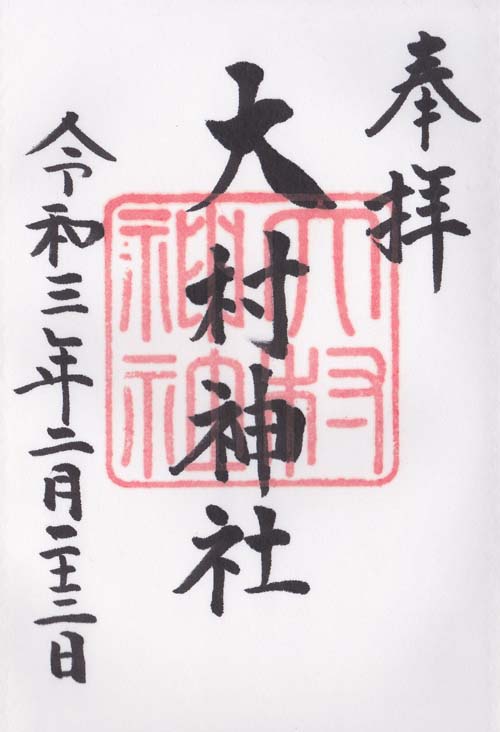 奉拝
大村神社
令和三年二月二十三日
大村
神社